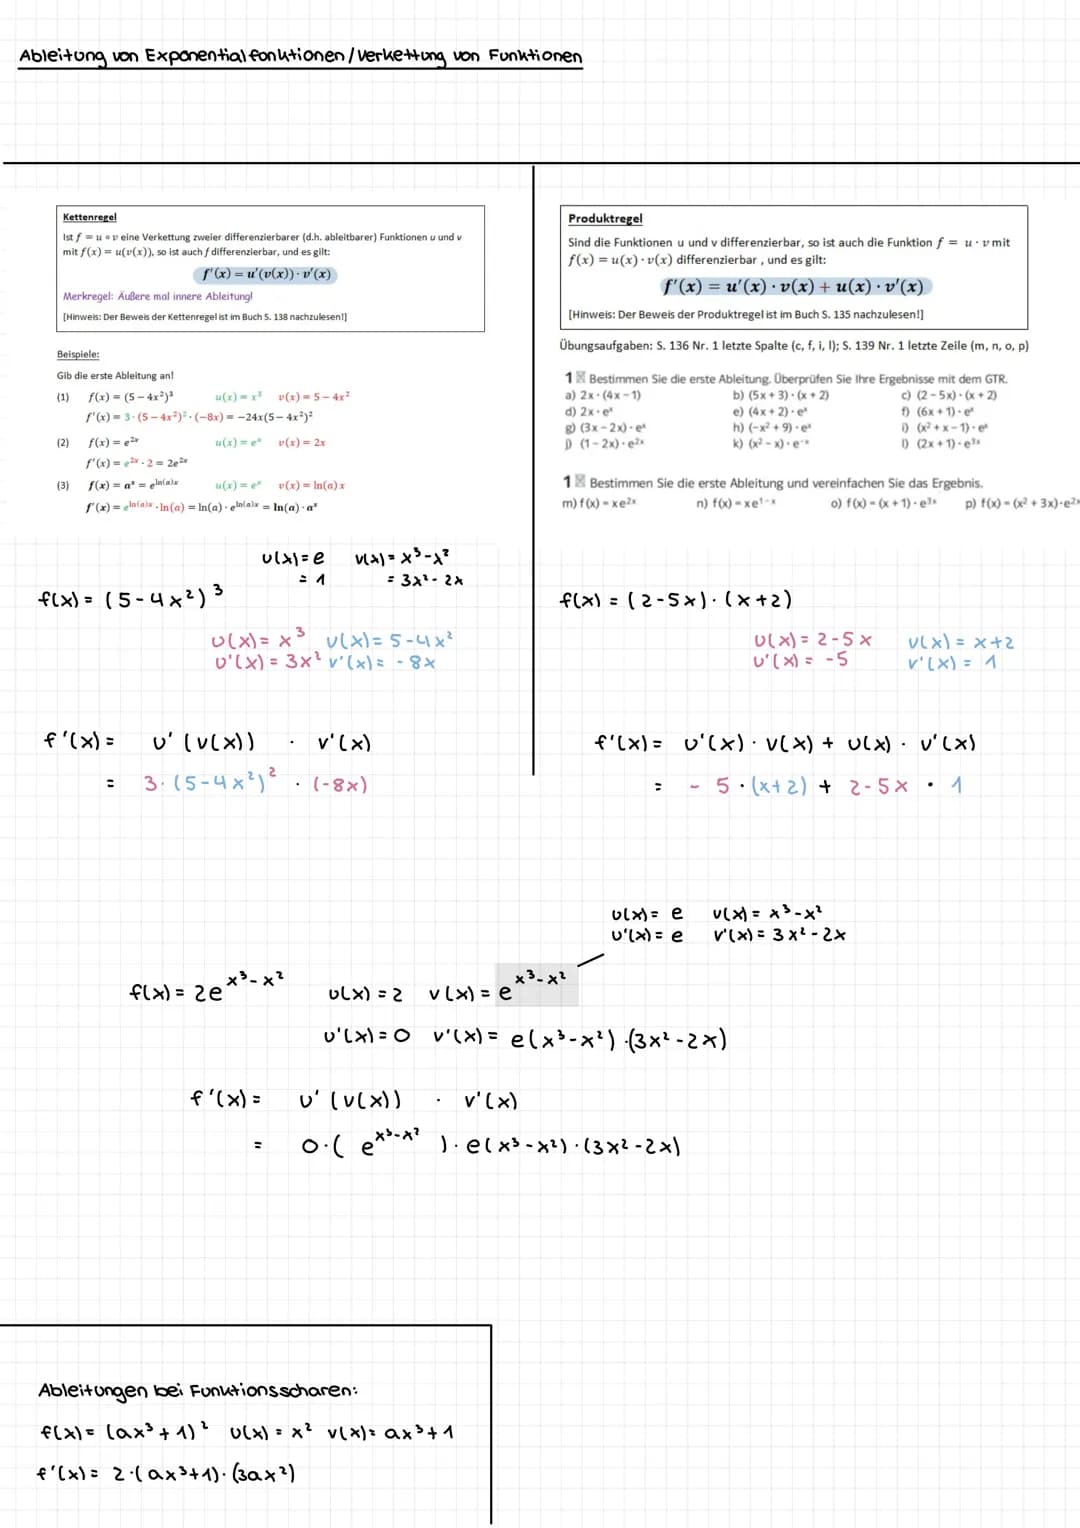 Ableitung von Exponentialfonktionen/Verkettung von Funktionen
Kettenregel
Ist f = u ∘ v eine Verkettung zweier differenzierbarer (d.h. ableitbarer) Funktionen u und v
mit f(x) = u(v(x)), so ist auch f differenzierbar, und es gilt:
f'(x) = u'(v(x)) · v'(x)
Merkregel: Äußere mal innere Ableitung!
[Hinweis: Der Beweis der Kettenregel ist im Buch S. 138 nachzulesen!]
Beispiele:
Gib die erste Ableitung an!
(1) f(x) = (5 – 4x²)³ u(x) = x³ v(x) = 5 – 4x²
f'(x) = 3 · (5 – 4x²)² · (–8x) = –24x(5 – 4x²)²
(2) f(x) = e²ˣ u(x) = eˣ v(x) = 2x
f'(x) = e²ˣ · 2 = 2e²ˣ
(3) f(x) = aˣ = e^(ln(a)x) u(x) = eˣ v(x) = ln(a) x
f'(x) = e^(ln(a)x) · ln(a) = ln(a) · e^(ln(a)x) = ln(a) · aˣ
u(x) = e v(x) = x³-x²
= 1 = 3x²- 2x
f(x) = (5-4x²)³
u(x) = x³ v(x) = 5-4x²
u'(x) = 3x² v'(x) = -8x
f'(x) = u' (v(x)) · v'(x)
= 3·(5-4x²)² · (-8x)
Produktregel
Sind die Funktionen u und v differenzierbar, so ist auch die Funktion f = u · v mit
f(x) = u(x) · v(x) differenzierbar , und es gilt:
f'(x) = u'(x) · v(x) + u(x) · v'(x)
[Hinweis: Der Beweis der Produktregel ist im Buch S. 135 nachzulesen!]
Übungsaufgaben: S. 136 Nr. 1 letzte Spalte (c, f, i, l); S. 139 Nr. 1 letzte Zeile (m, n, o, p)
1 Bestimmen Sie die erste Ableitung. Überprüfen Sie Ihre Ergebnisse mit dem GTR.
a) 2x · (4x – 1) b) (5x + 3) · (x + 2) c) (2 – 5x) · (x + 2)
d) 2x · eˣ e) (4x + 2) · eˣ f) (6x + 1) · eˣ
g) (3x – 2x) · eˣ h) (–x² + 9) · eˣ i) (x² + x – 1) · eˣ
j) (1 – 2x) · e²ˣ k) (x² – x) · e⁻ˣ l) (2x + 1) · e³ˣ
1 Bestimmen Sie die erste Ableitung und vereinfachen Sie das Ergebnis.
m) f(x) = xe²ˣ n) f(x) = xe¹⁻ˣ o) f(x) = (x + 1) · e³ˣ p) f(x) = (x² + 3x)·e²ˣ
f(x) = (2-5x)·(x+2)
u(x) = 2-5x v(x) = x+2
u'(x) = -5 v'(x) = 1
f'(x) = u'(x) · v(x) + u(x) · v'(x)
= - 5 · (x+2) + 2-5x · 1
u(x) = e v(x) = x³-x²
u'(x) = e v'(x) = 3x²-2x
f(x) = 2e^(x³-x²) u(x) = 2 v(x) = e^(x³-x²)
u'(x) = 0 v'(x) = e(x³-x²)·(3x²-2x)
f'(x) = u' (v(x)) · v'(x)
= 0·( e^(x³-x²) )· e(x³-x²)·(3x²-2x)
Ableitungen bei Funktionsscharen:
f(x) = (ax³+1)² u(x) = x² v(x) = ax³+1
f'(x) = 2·(ax³+1)·(3ax²)